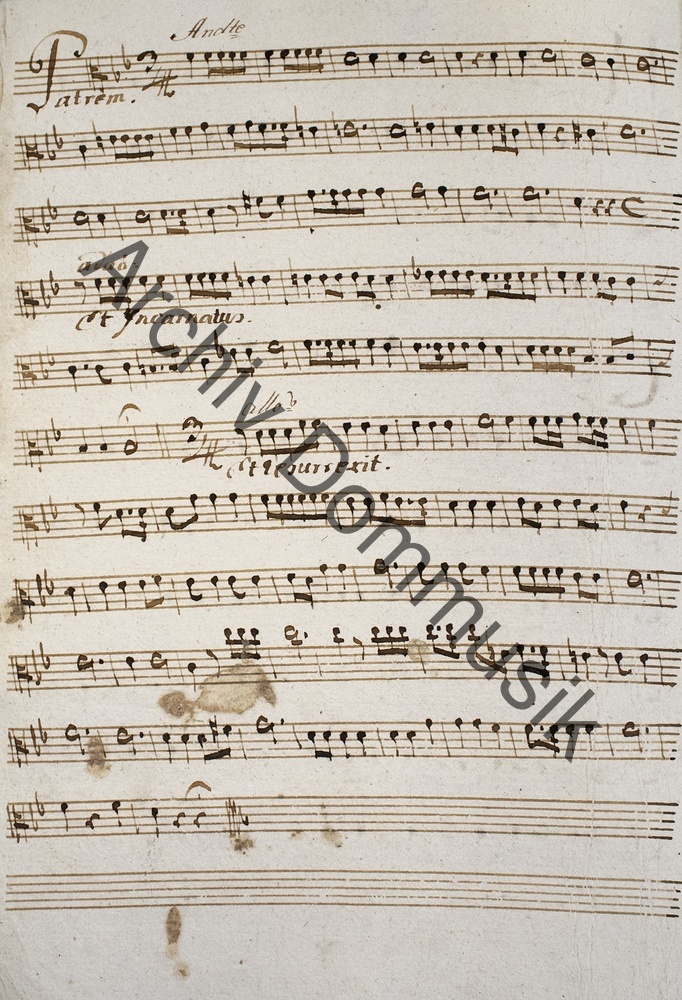 Andte
Patrem.
3/4
addo
Et Incarnatus.
allo
3/4
Et resurrexit.
Archiv Dommusik